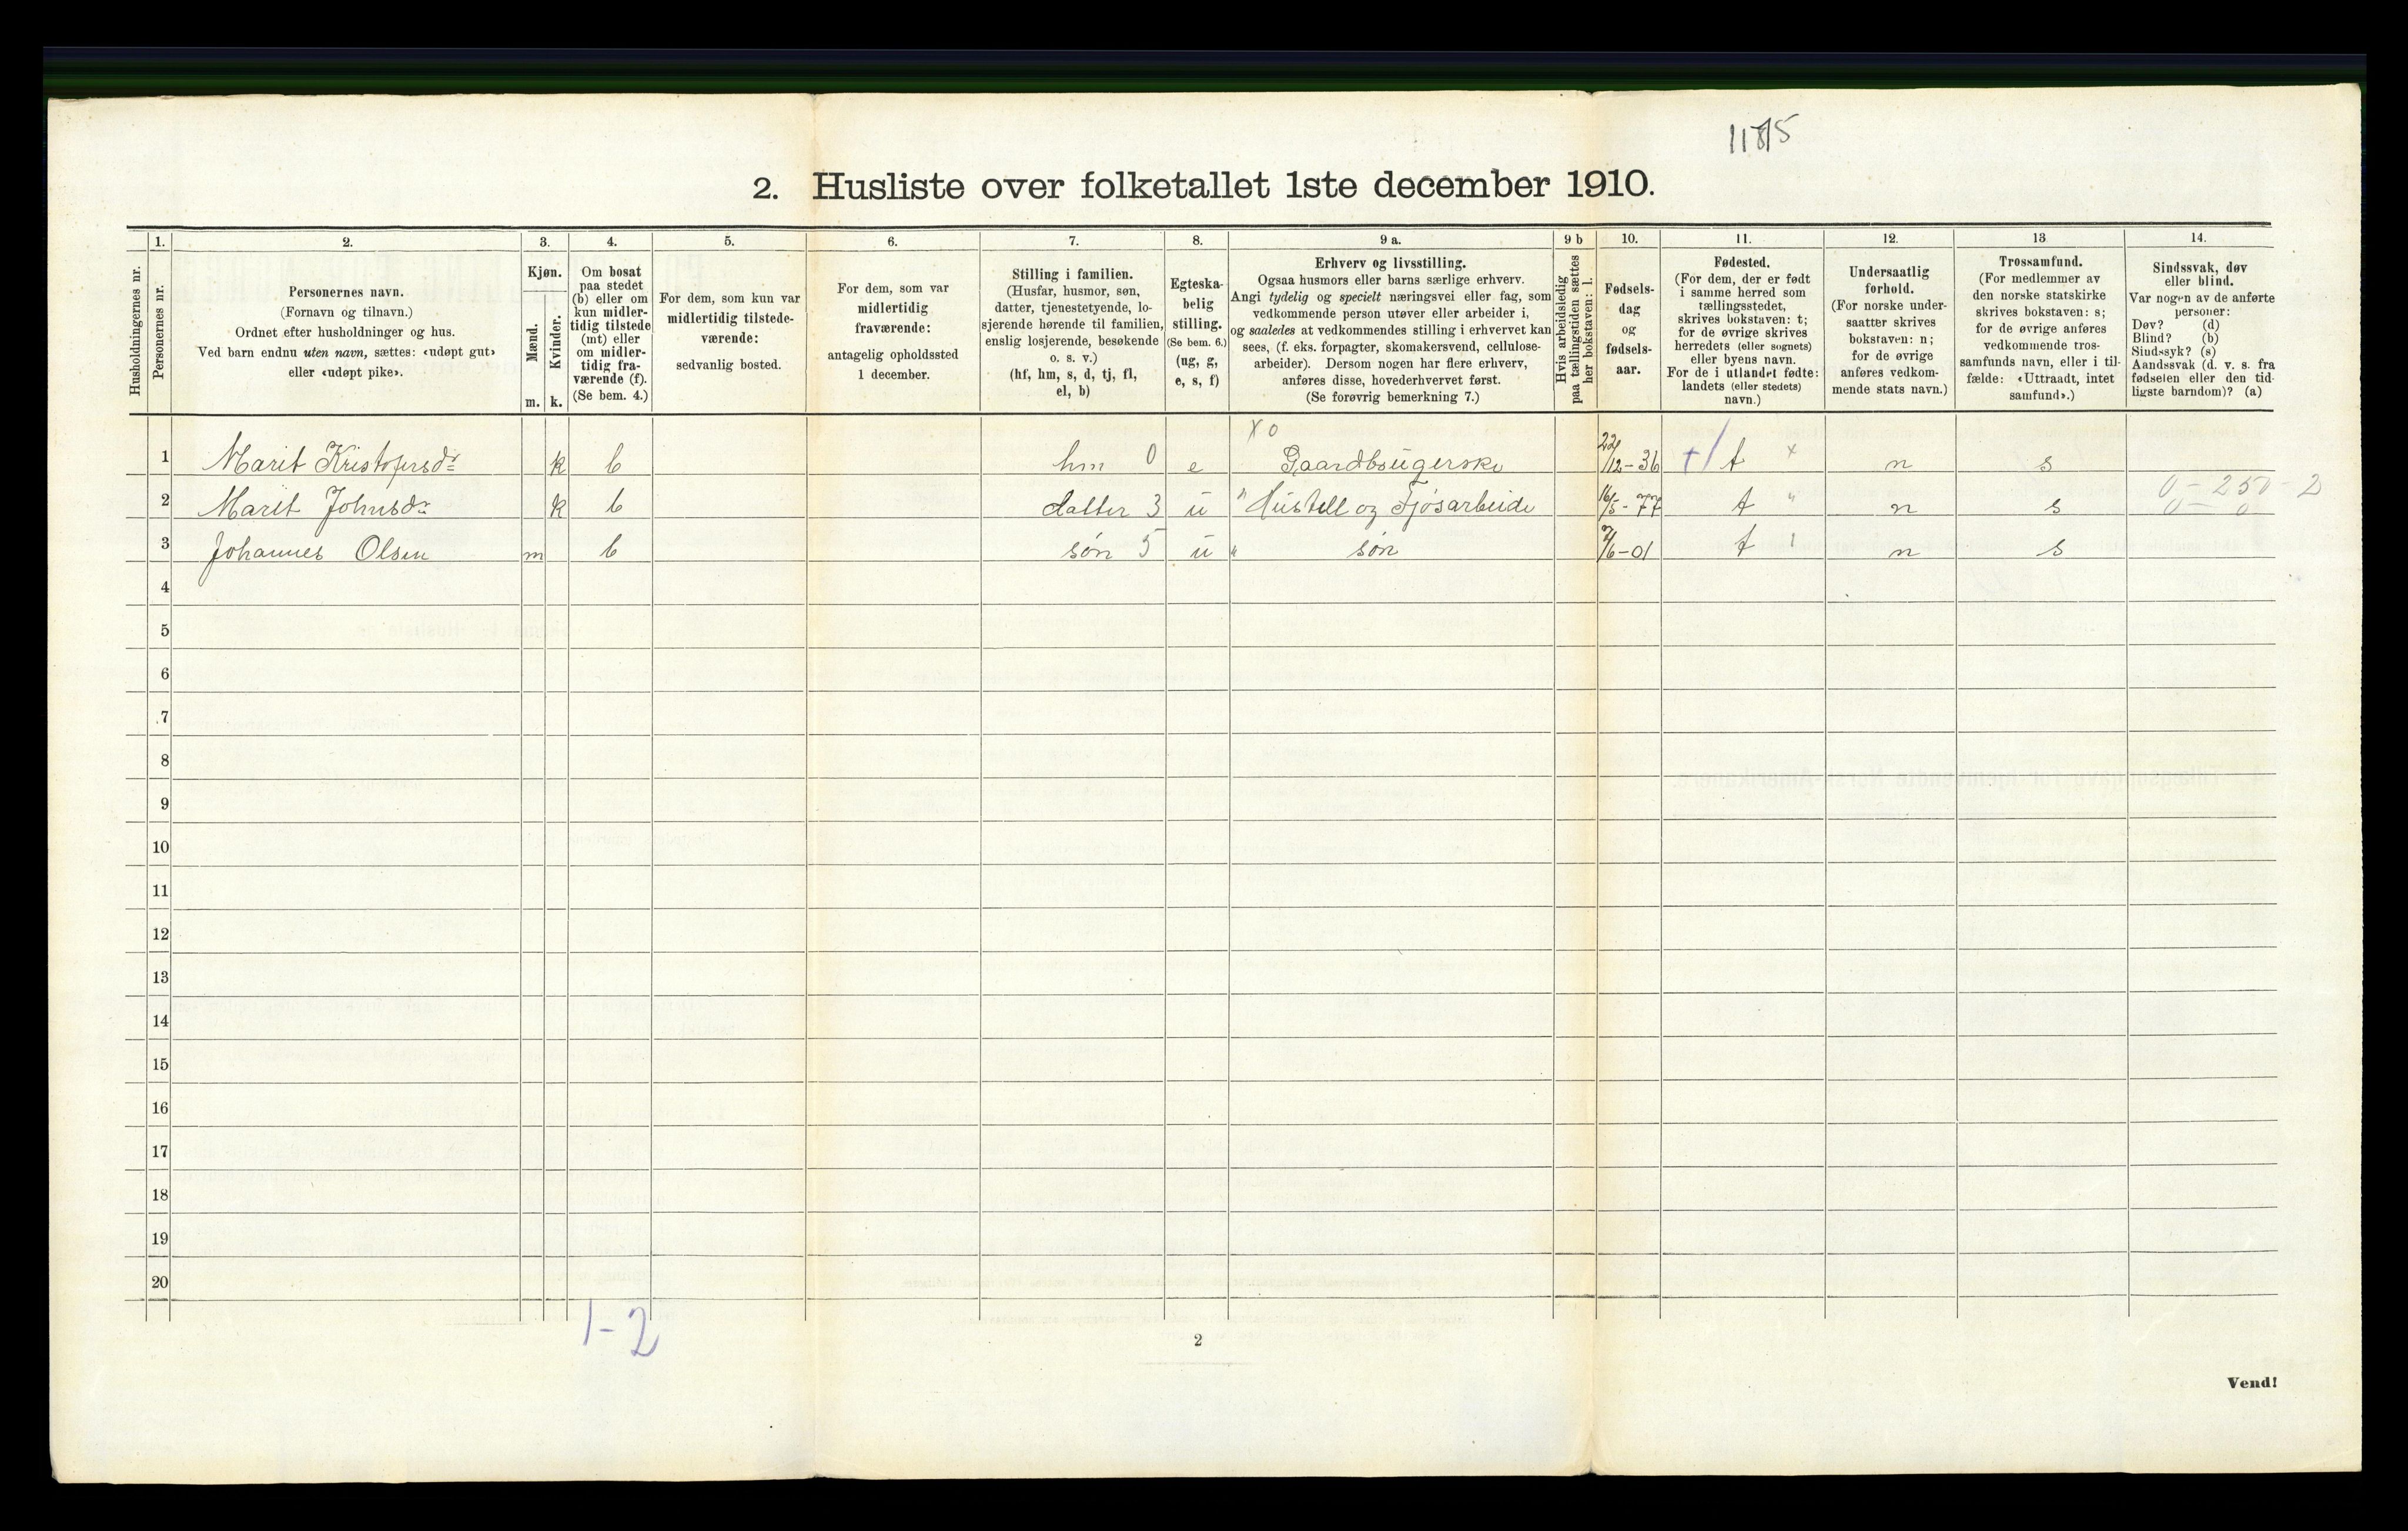 1185
2. Husliste over folketallet 1ste december 1910.
1. 2. 3. 4. 5. 6. 7. 8. 9 a. 9 b 10. 11. 12. 13 14.
Husholdningernes nr.
Personernes nr.
Personernes navn.
(Fornavn og tilnavn.)
Ordnet efter husholdninger og hus.
Ved barn endnu uten navn, sættes: «udøpt gut»
eller «udøpt pike».
Kjøn.
Mænd.
Kvinder.
m. k.
Om bosat
paa stedet
(b) eller om
kun midler-
tidig tilstede
(mt) eller
om midler-
tidig fra-
værende (f).
(Se bem. 4.)
For dem, som kun var
midlertidig tilstede-
værende:
sedvanlig bosted.
For dem, som var
midlertidig
fraværende:
antagelig opholdssted
1 december.
Stilling i familien.
(Husfar, husmor, søn,
datter, tjenestetyende, lo-
sjerende hørende til familien,
enslig losjerende, besøkende
o. s. v.)
(hf, hm, s, d, tj, fl,
el, b)
Egteska-
belig
stilling.
(Se bem. 6.)
(ug, g,
e, s, f)
Erhverv og livsstilling.
Ogsaa husmors eller barns særlige erhverv.
Angi tydelig og specielt næringsvei eller fag, som
vedkommende person utøver eller arbeider i,
og saaledes at vedkommendes stilling i erhvervet kan
sees, (f. eks. forpagter, skomakersvend, cellulose-
arbeider). Dersom nogen har flere erhverv,
anføres disse, hovederhvervet først.
(Se forøvrig bemerkning 7.)
Hvis arbeidsledig
paa tællingstiden sættes
her bokstaven: l.
Fødsels-
dag
og
fødsels-
aar.
Fødested.
(For dem, der er født
i samme herred som
tællingsstedet,
skrives bokstaven: t;
for de øvrige skrives
herredets (eller sognets)
eller byens navn.
For de i utlandet fødte:
landets (eller stedets)
navn.)
Undersaatlig
forhold.
(For norske under-
saatter skrives
bokstaven: n;
for de øvrige
anføres vedkom-
mende stats navn.)
Trossamfund.
(For medlemmer av
den norske statskirke
skrives bokstaven: s;
for de øvrige anføres
vedkommende tros-
samfunds navn, eller i til-
fælde: «Uttraadt, intet
samfund».)
Sindssvak, døv
eller blind.
Var nogen av de anførte
personer:
Døv? (d)
Blind? (b)
Sindssyk? (s)
Aandssvak (d. v. s. fra
fødselen eller den tid-
ligste barndom)? (a)
x 0
1 Marit Kristofersdr k b hm 0 e Gaardbrugerske 22/12-36 t x n s
0 - 250 - 2
2 Marit Johnsdr k b datter 3 u " Hustell og Fjøsarbeide 16/5-77 t " n s 0 - 0
3 Johannes Olsen m b søn 5 u " søn 7/6-01 t n s
4
5
6
7
8
9
10
11
12
13
14
15
16
17
18
19
20
1-2
2
Vend!